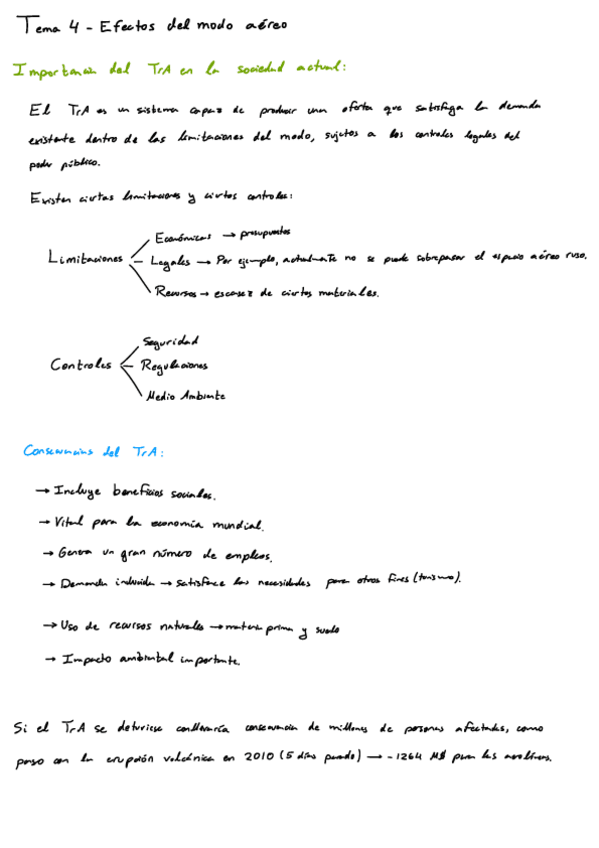 Tema 4 - Efectos del modo aéreo
Importancia del TrA en la sociedad actual:
El TrA es un sistema capaz de producir una oferta que satisfaga la demanda
existente dentro de las limitaciones del modo, sujetos a los controles legales del
poder público.
Existen ciertas limitaciones y ciertos controles:
Limitaciones
Económicas → presupuestos
Legales → Por ejemplo, actualmente no se puede sobrepasar el espacio aéreo ruso.
Recursos → escasez de ciertos materiales.
Controles
Seguridad
Regulaciones
Medio Ambiente
Consecuencias del TrA:
→ Incluye beneficios sociales.
→ Vital para la economía mundial.
→ Genera un gran número de empleos.
→ Demanda inducida → satisface las necesidades para otros fines (turismo).
→ Uso de recursos naturales → materia prima y suelo
→ Impacto ambiental importante.
Si el TrA se detuviese conllevaría consecuencia de millones de personas afectadas, como
paso con la erupción volcánica en 2010 (5 días parado) → -1264 M$ para las aerolíneas.